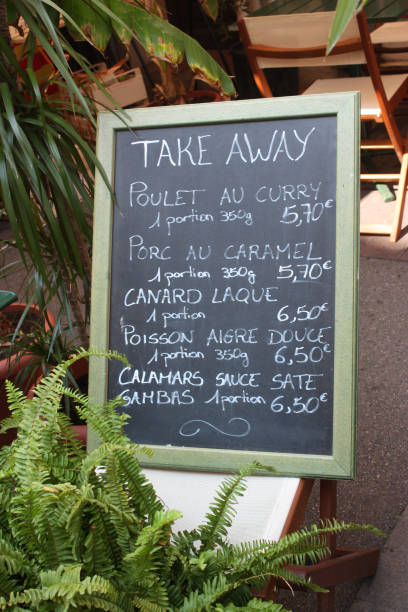 TAKE AWAY
POULET AU CURRY
1 portion 350g 5,70€
PORC AU CARAMEL
1 portion 350g 5,70€
CANARD LAQUE
1 portion 6,50€
POISSON AIGRE DOUCE
1 portion 350g 6,50€
CALAMARS SAUCE SATE
GAMBAS 1 portion 6,50€